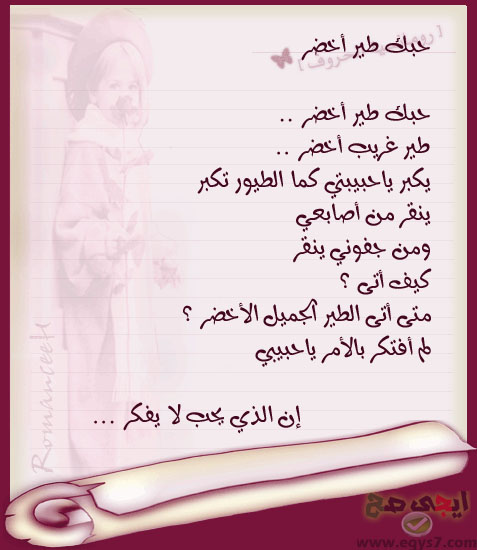 حبك طير أخضر
حبك طير أخضر ..
طير غريب أخضر ..
يكبر ياحبيبتي كما الطيور تكبر
ينقر من أصابعي
ومن جفوني ينقر
كيف أتى ؟
متى أتى الطير الجميل الأخضر ؟
لم أفتكر بالأمر ياحبيبي
إن الذي يحب لا يفكر ...
RomanceeH
ايجى صح
www.eqys7.com